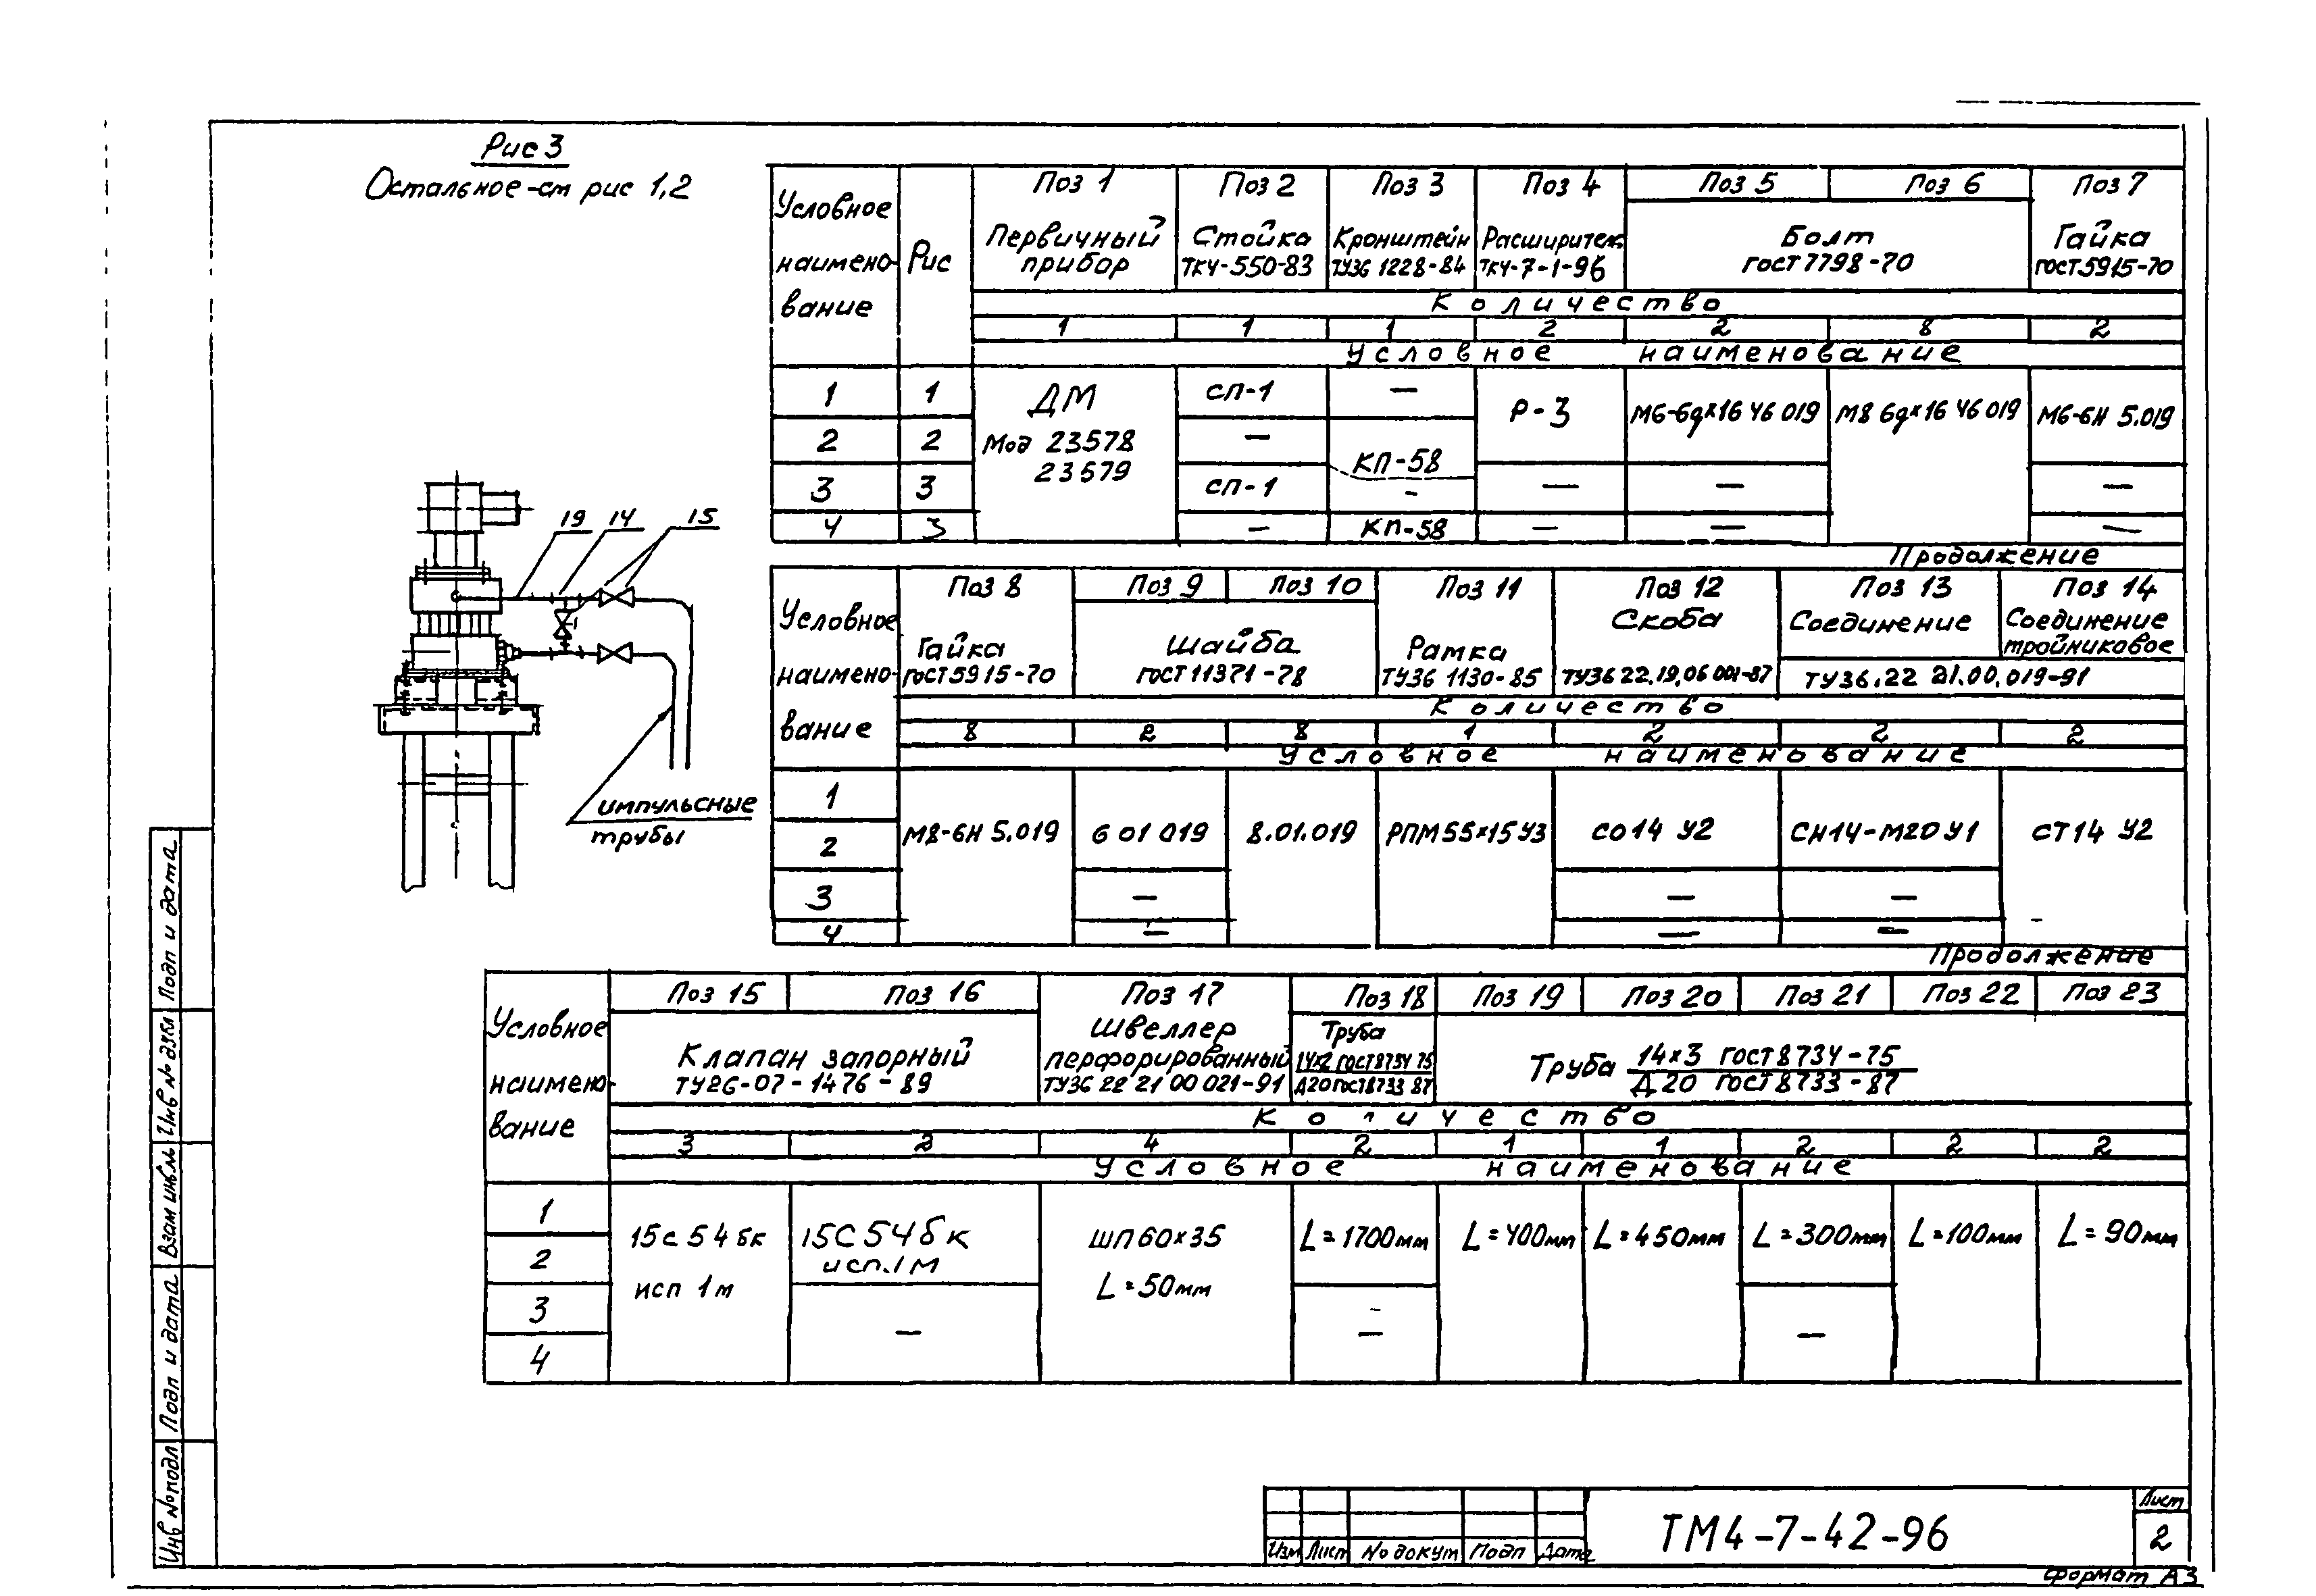 Рис 3
Остальное - см рис 1,2
19 14 15
импульсные
трубы
Условное наименование Рис Поз 1 Поз 2 Поз 3 Поз 4 Поз 5 Поз 6 Поз 7
Первичный прибор Стойка ТК4-550-83 Кронштейн ТУ36 1228-84 Расширитель ТК4-7-1-96 Болт ГОСТ 7798-70 Гайка ГОСТ 5915-70
Количество
1 1 1 2 2 8 2
Условное наименование
1 1 ДМ Мод 23578 23579 СП-1 — Р-3 М6-6gх16 46 019 М8 6gх16 46 019 М6-6Н 5.019
2 2 — КП-58
3 3 СП-1 - — — —
4 3 — КП-58 — — —
Продолжение
Условное наименование Поз 8 Поз 9 Поз 10 Поз 11 Поз 12 Поз 13 Поз 14
Гайка ГОСТ 5915-70 Шайба ГОСТ 11371-78 Рамка ТУ36 1130-85 Скоба ТУ36 22.19.06 001-87 Соединение Соединение тройниковое ТУ36.22 21.00.019-91
Количество
8 2 8 1 2 2 2
Условное наименование
1
2 М8-6Н 5.019 6 01 019 8.01.019 РПМ 55х15 У3 СО14 У2 СН14-М20 У1 СТ14 У2
3 — — —
4 — — —
Продолжение
Условное наименование Поз 15 Поз 16 Поз 17 Поз 18 Поз 19 Поз 20 Поз 21 Поз 22 Поз 23
Клапан запорный ТУ26-07-1476-89 Швеллер перфорированный ТУ36 22 21 00 021-91 Труба 14х2 ГОСТ 8734 75 Д20 ГОСТ 8733 87 Труба 14х3 ГОСТ 8734-75 Д20 ГОСТ 8733-87
Количество
3 2 4 2 1 1 2 2 2
Условное наименование
1
2 15с 54 бк исп 1м 15С 54 бк исп.1М ШП 60х35 L=50мм L=1700мм L=400мм L=450мм L=300мм L=100мм L=90мм
3 -
4 — — —
Подп и дата
Инв № дубл
Взам инв №
Подп и дата
Инв № подл
Изм Лист № докум Подп Дата
ТМ4-7-42-96
Лист
2
Формат А3